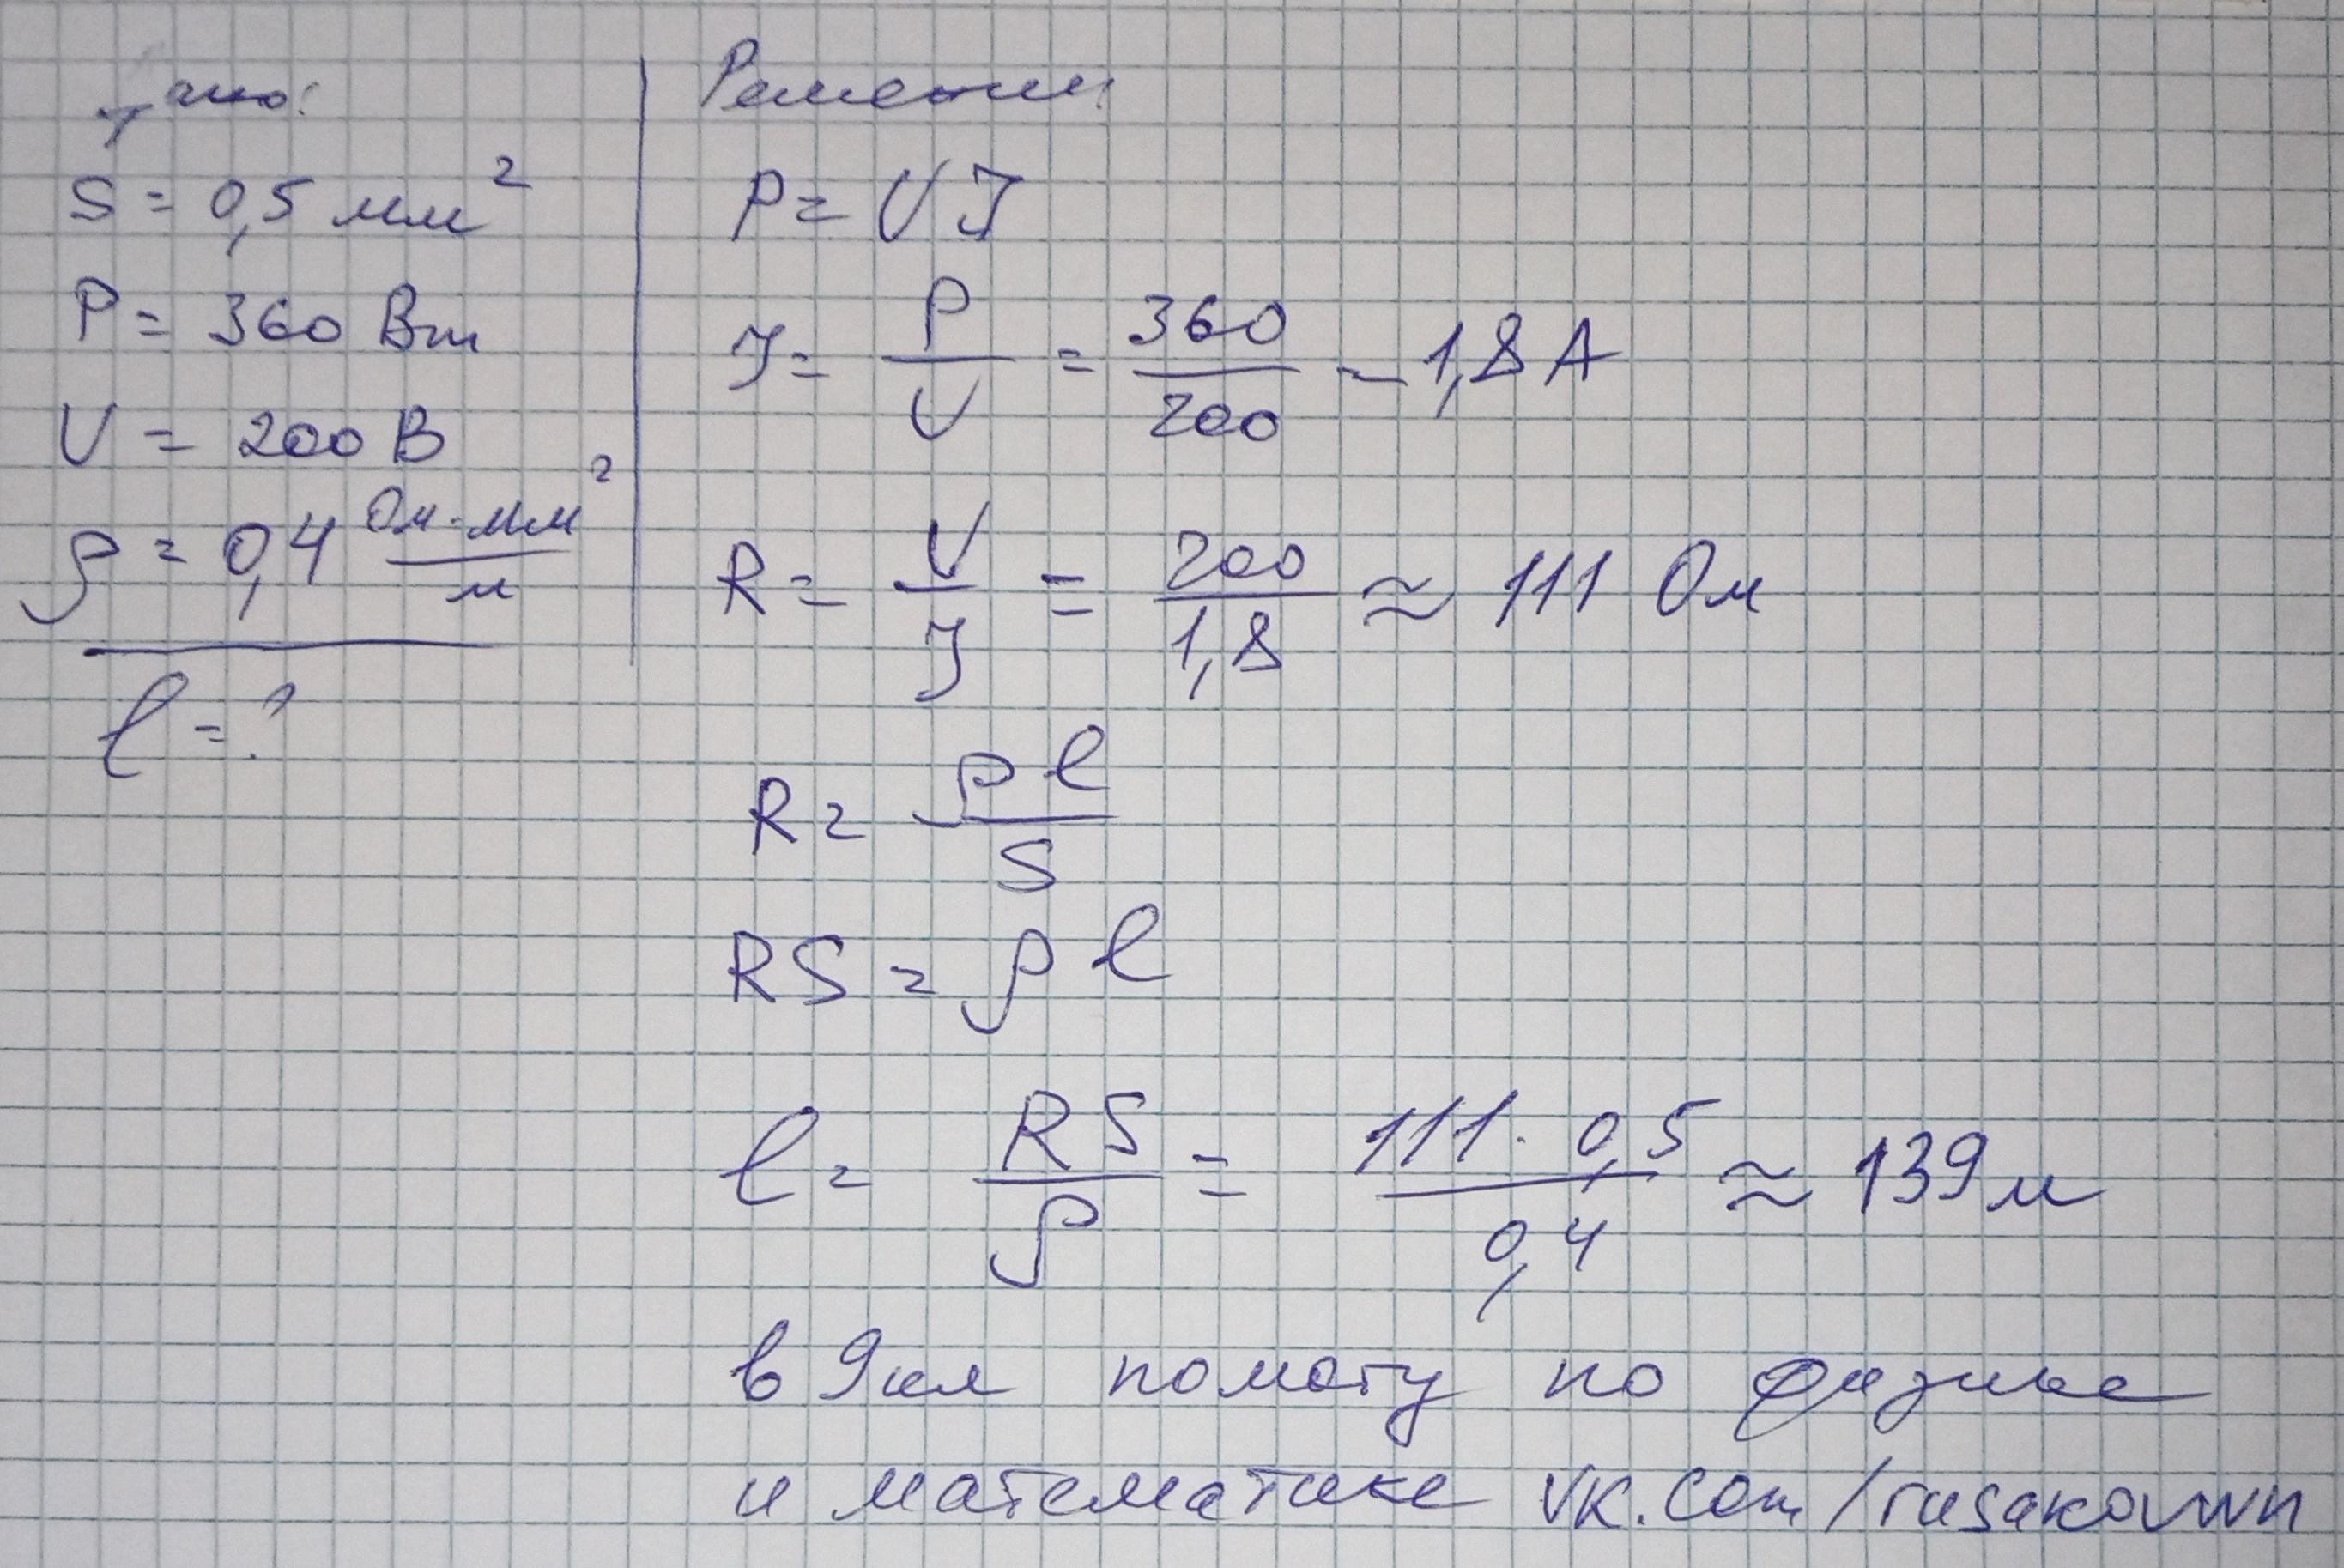 Дано:
S = 0,5 мм²
P = 360 Вт
U = 200 В
ρ = 0,4 Ом·мм²/м
l = ?
Решение:
P = UI
I = P/U = 360/200 = 1,8 А
R = U/I = 200/1,8 ≈ 111 Ом
R = ρl/S
RS = ρl
l = RS/ρ = 111·0,5/0,4 ≈ 139 м
в 9 кл помогу по физике
и математике vk.com/rusakovwn